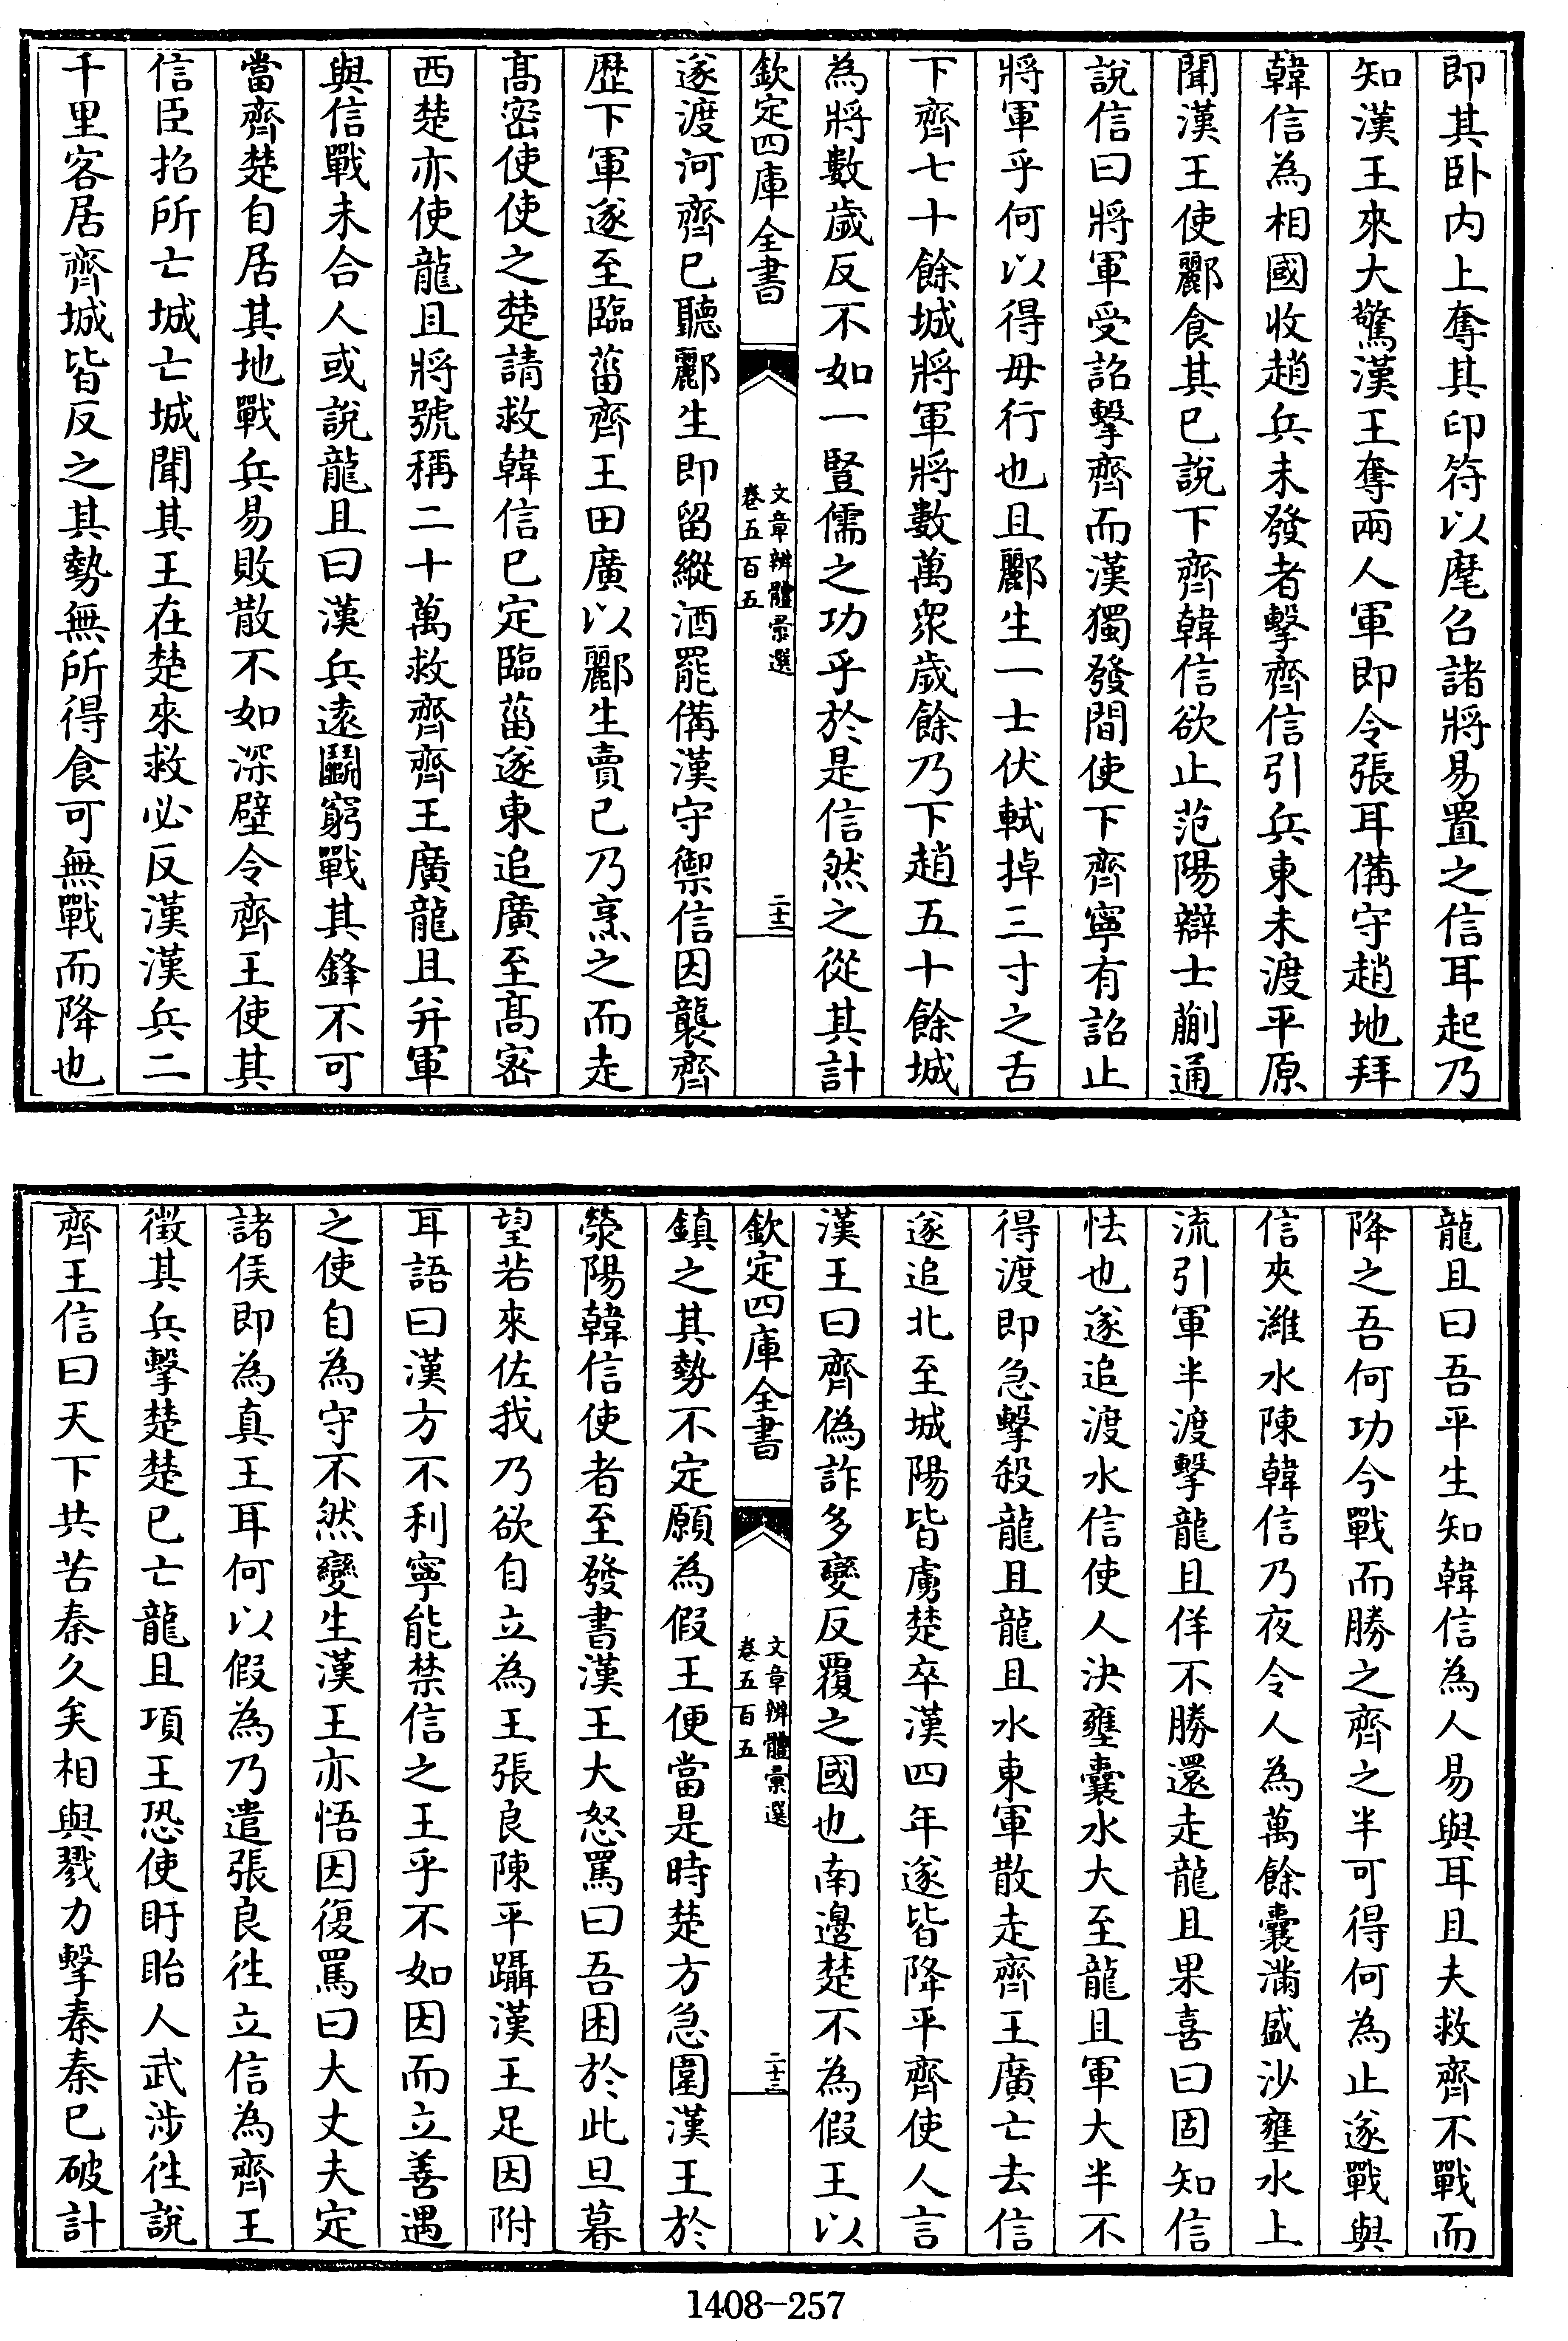 即其卧内上奪其印符以麾召諸將易置之信耳起乃
知漢王來大驚漢王奪兩人軍即令張耳備守趙地拜
韓信為相國收趙兵未發者擊齊信引兵東未渡平原
聞漢王使酈食其已說下齊韓信欲止范陽辯士蒯通
說信曰將軍受詔擊齊而漢獨發間使下齊寧有詔止
將軍乎何以得毋行也且酈生一士伏軾掉三寸之舌
下齊七十餘城將軍將數萬衆歲餘乃下趙五十餘城
為將數歲反不如一豎儒之功乎於是信然之從其計
欽定四庫全書
文章辨體彚選
卷五百五
二十二
遂渡河齊已聽酈生即留縱酒罷備漢守禦信因襲齊
歷下軍遂至臨菑齊王田廣以酈生賣已乃烹之而走
髙密使使之楚請救韓信已定臨菑遂東追廣至髙密
西楚亦使龍且將號稱二十萬救齊齊王廣龍且并軍
與信戰未合人或說龍且曰漢兵遠鬭窮戰其鋒不可
當齊楚自居其地戰兵易敗散不如深壁令齊王使其
信臣招所亡城亡城聞其王在楚來救必反漢漢兵二
千里客居齊城皆反之其勢無所得食可無戰而降也
龍且曰吾平生知韓信為人易與耳且夫救齊不戰而
降之吾何功今戰而勝之齊之半可得何為止遂戰與
信夾濰水陳韓信乃夜令人為萬餘囊滿盛沙壅水上
流引軍半渡擊龍且佯不勝還走龍且果喜曰固知信
怯也遂追渡水信使人決壅囊水大至龍且軍大半不
得渡即急擊殺龍且龍且水東軍散走齊王廣亡去信
遂追北至城陽皆虜楚卒漢四年遂皆降平齊使人言
漢王曰齊偽詐多變反覆之國也南邊楚不為假王以
欽定四庫全書
文章辨體彚選
卷五百五
二十三
鎮之其勢不定願為假王便當是時楚方急圍漢王於
滎陽韓信使者至發書漢王大怒罵曰吾困於此旦暮
望若來佐我乃欲自立為王張良陳平躡漢王足因附
耳語曰漢方不利寧能禁信之王乎不如因而立善遇
之使自為守不然變生漢王亦悟因復罵曰大丈夫定
諸侯即為真王耳何以假為乃遣張良徃立信為齊王
徵其兵擊楚楚已亡龍且項王恐使盱眙人武涉徃說
齊王信曰天下共苦秦久矣相與戮力擊秦秦已破計
1408-257